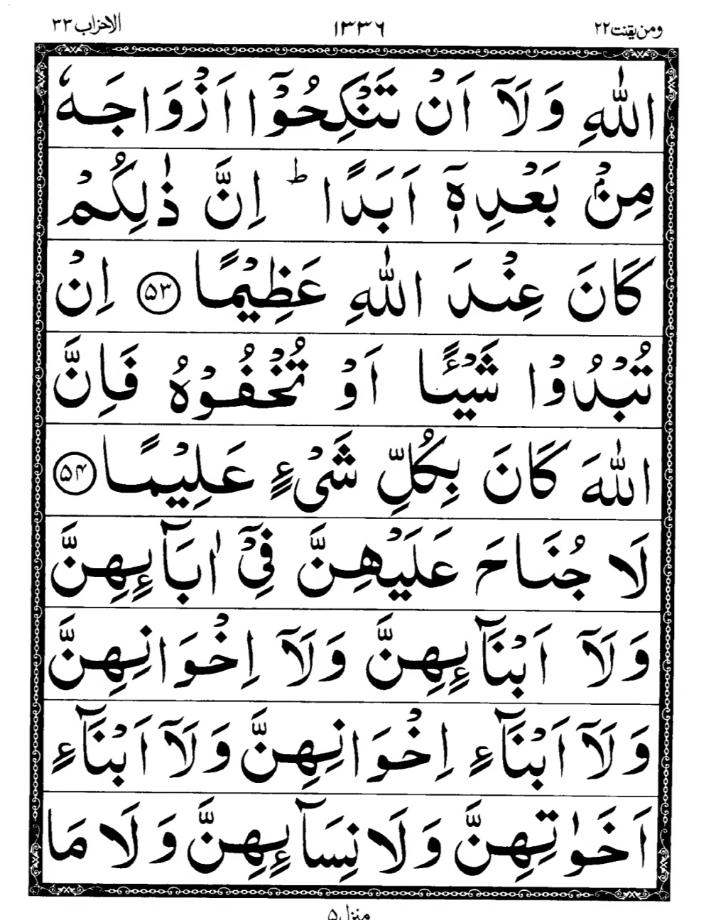 ومن یقنت ۲۲ ۱۳۳۶ الاحزاب ۳۳
اللّٰهِ وَلَاۤ اَنْ تَنْكِحُوْۤا اَزْوَاجَهٗ
مِنْۢ بَعْدِهٖۤ اَبَدًا ؕ اِنَّ ذٰلِكُمْ
كَانَ عِنْدَ اللّٰهِ عَظِیْمًا ۵۳ اِنْ
تُبْدُوْا شَیْـًٔا اَوْ تُخْفُوْهُ فَاِنَّ
اللّٰهَ كَانَ بِكُلِّ شَیْءٍ عَلِیْمًا ۵۴
لَا جُنَاحَ عَلَیْهِنَّ فِیْۤ اٰبَآىِٕهِنَّ
وَلَاۤ اَبْنَآىِٕهِنَّ وَلَاۤ اِخْوَانِهِنَّ
وَلَاۤ اَبْنَآءِ اِخْوَانِهِنَّ وَلَاۤ اَبْنَآءِ
اَخَوٰتِهِنَّ وَلَا نِسَآىِٕهِنَّ وَلَا مَا
منزل ۵